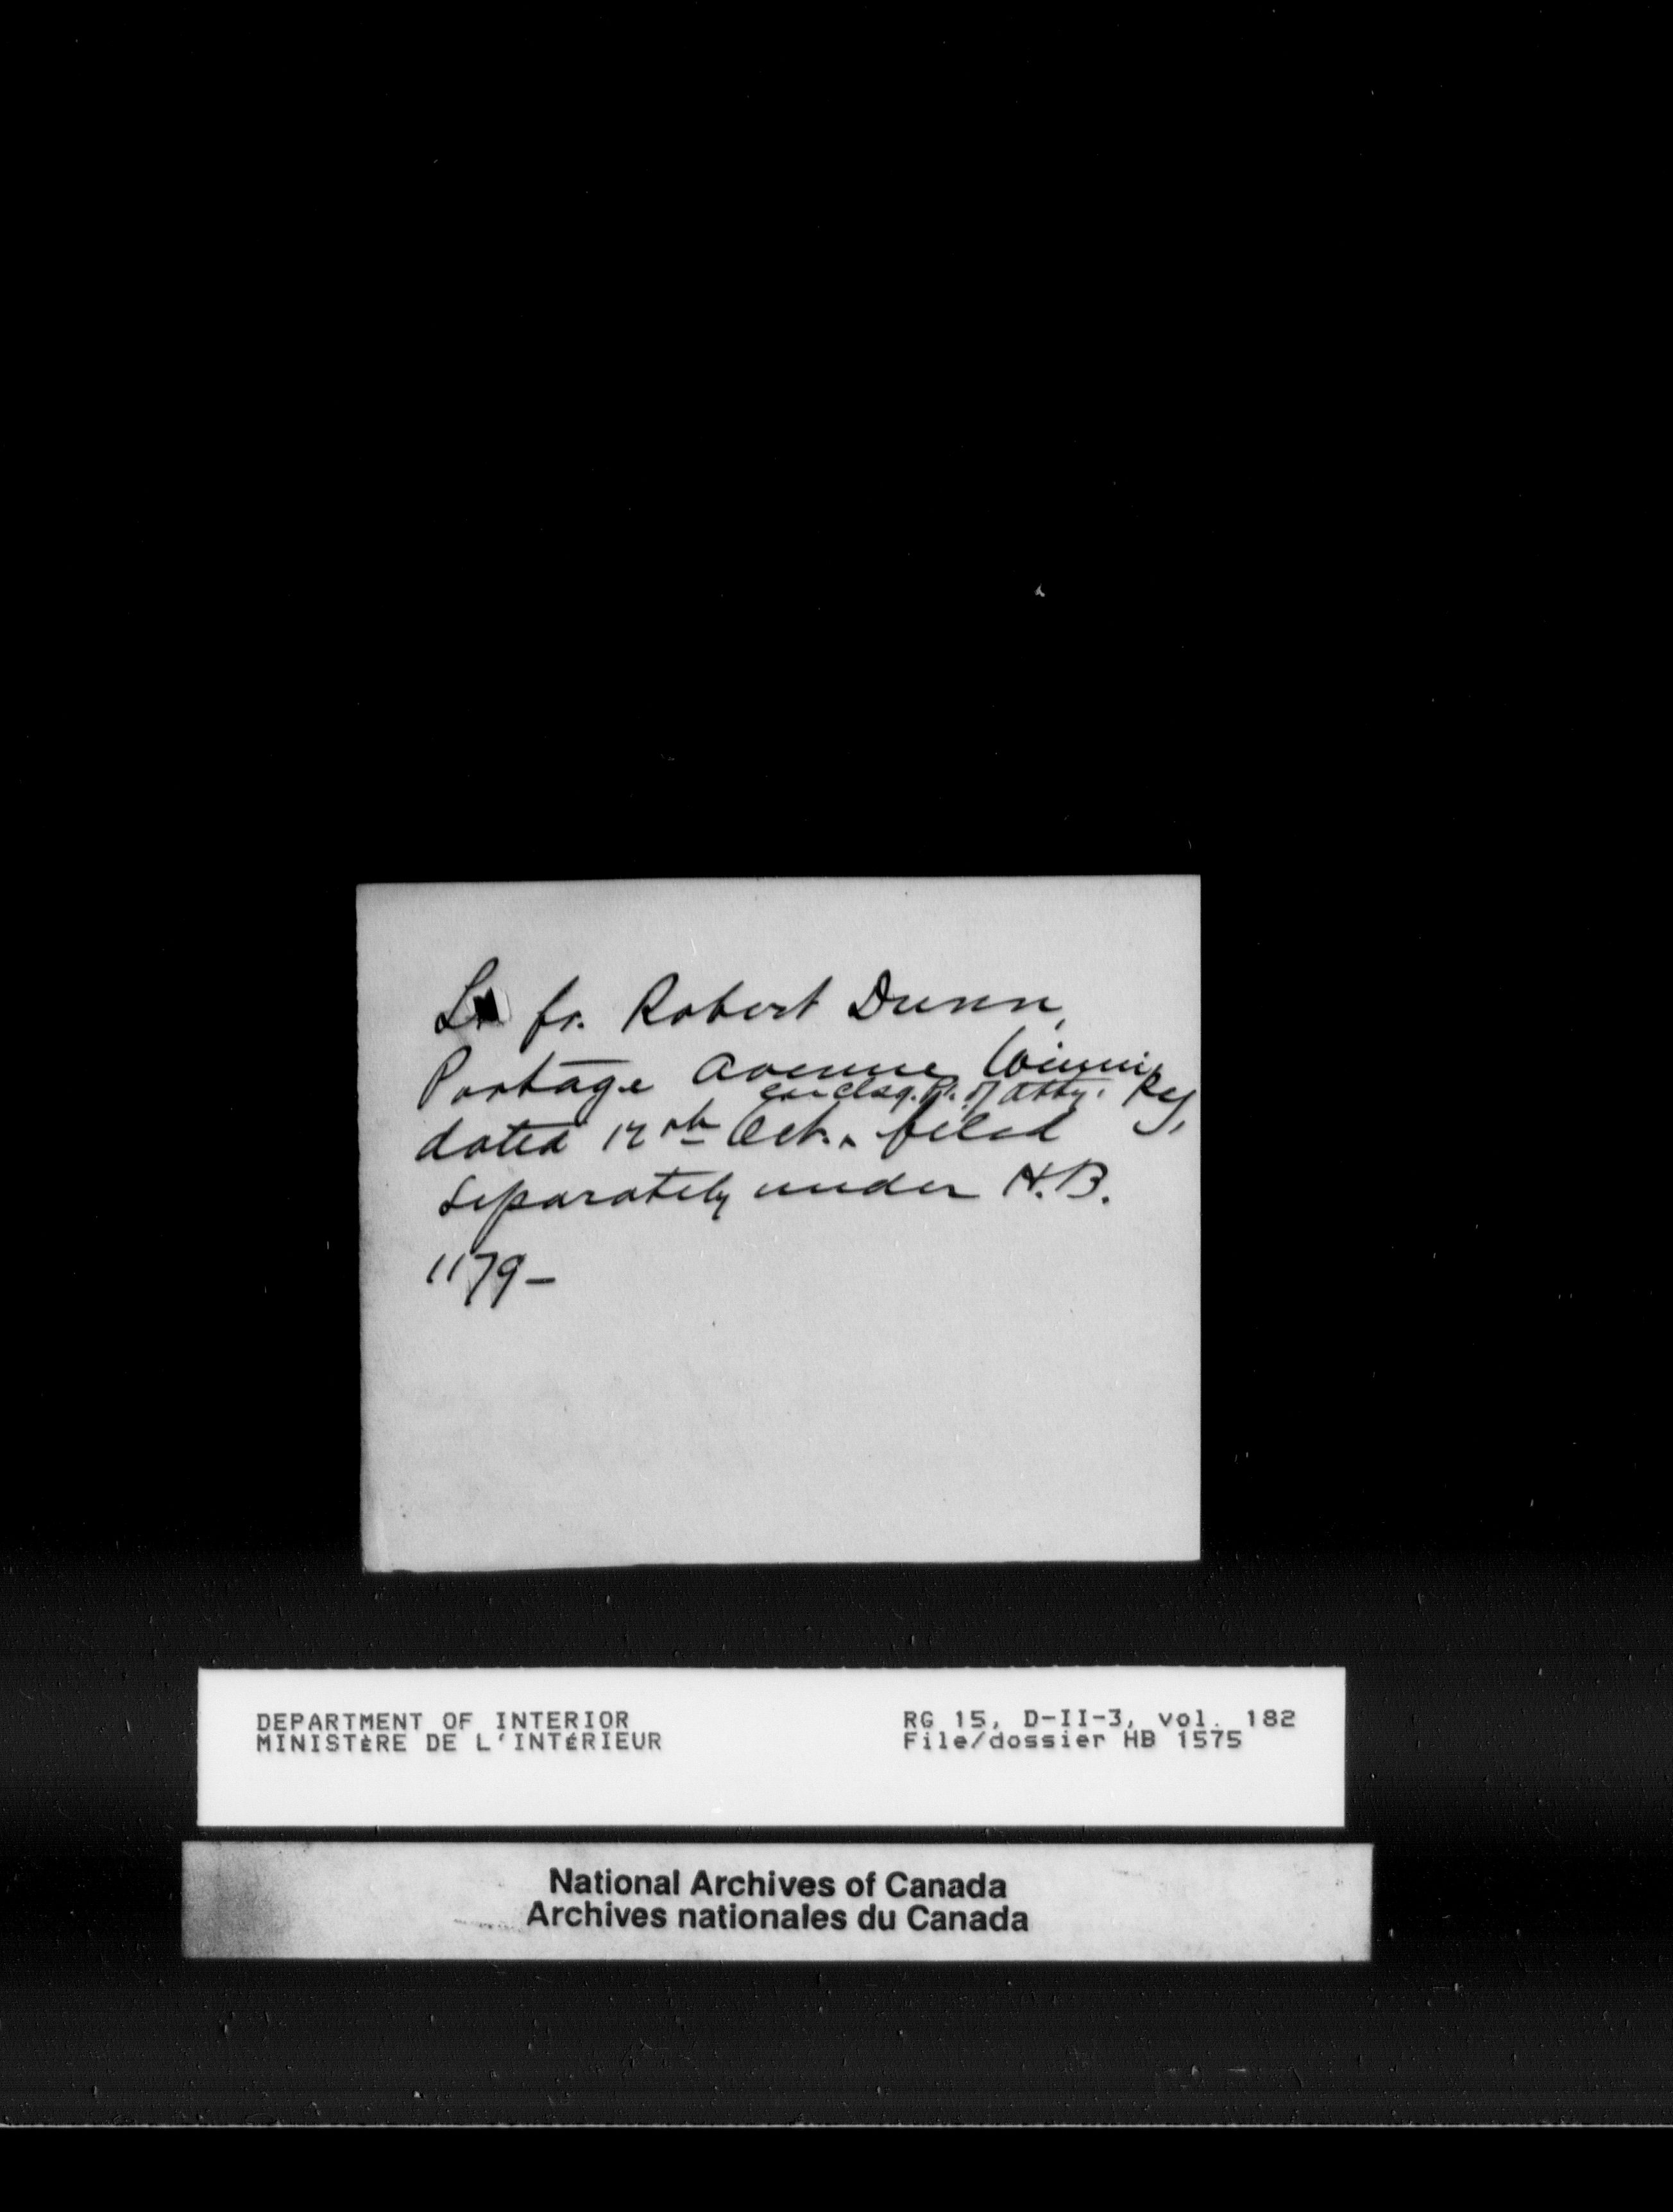 L fr. Robert Dunn,
Portage Avenue Winnipeg,
enclsg. P. of Atty.
dated 12th Oct. filed
separately under H.B.
1179-
DEPARTMENT OF INTERIOR
MINISTÈRE DE L'INTÉRIEUR
RG 15, D-II-3, vol. 182
File/dossier HB 1575
National Archives of Canada
Archives nationales du Canada